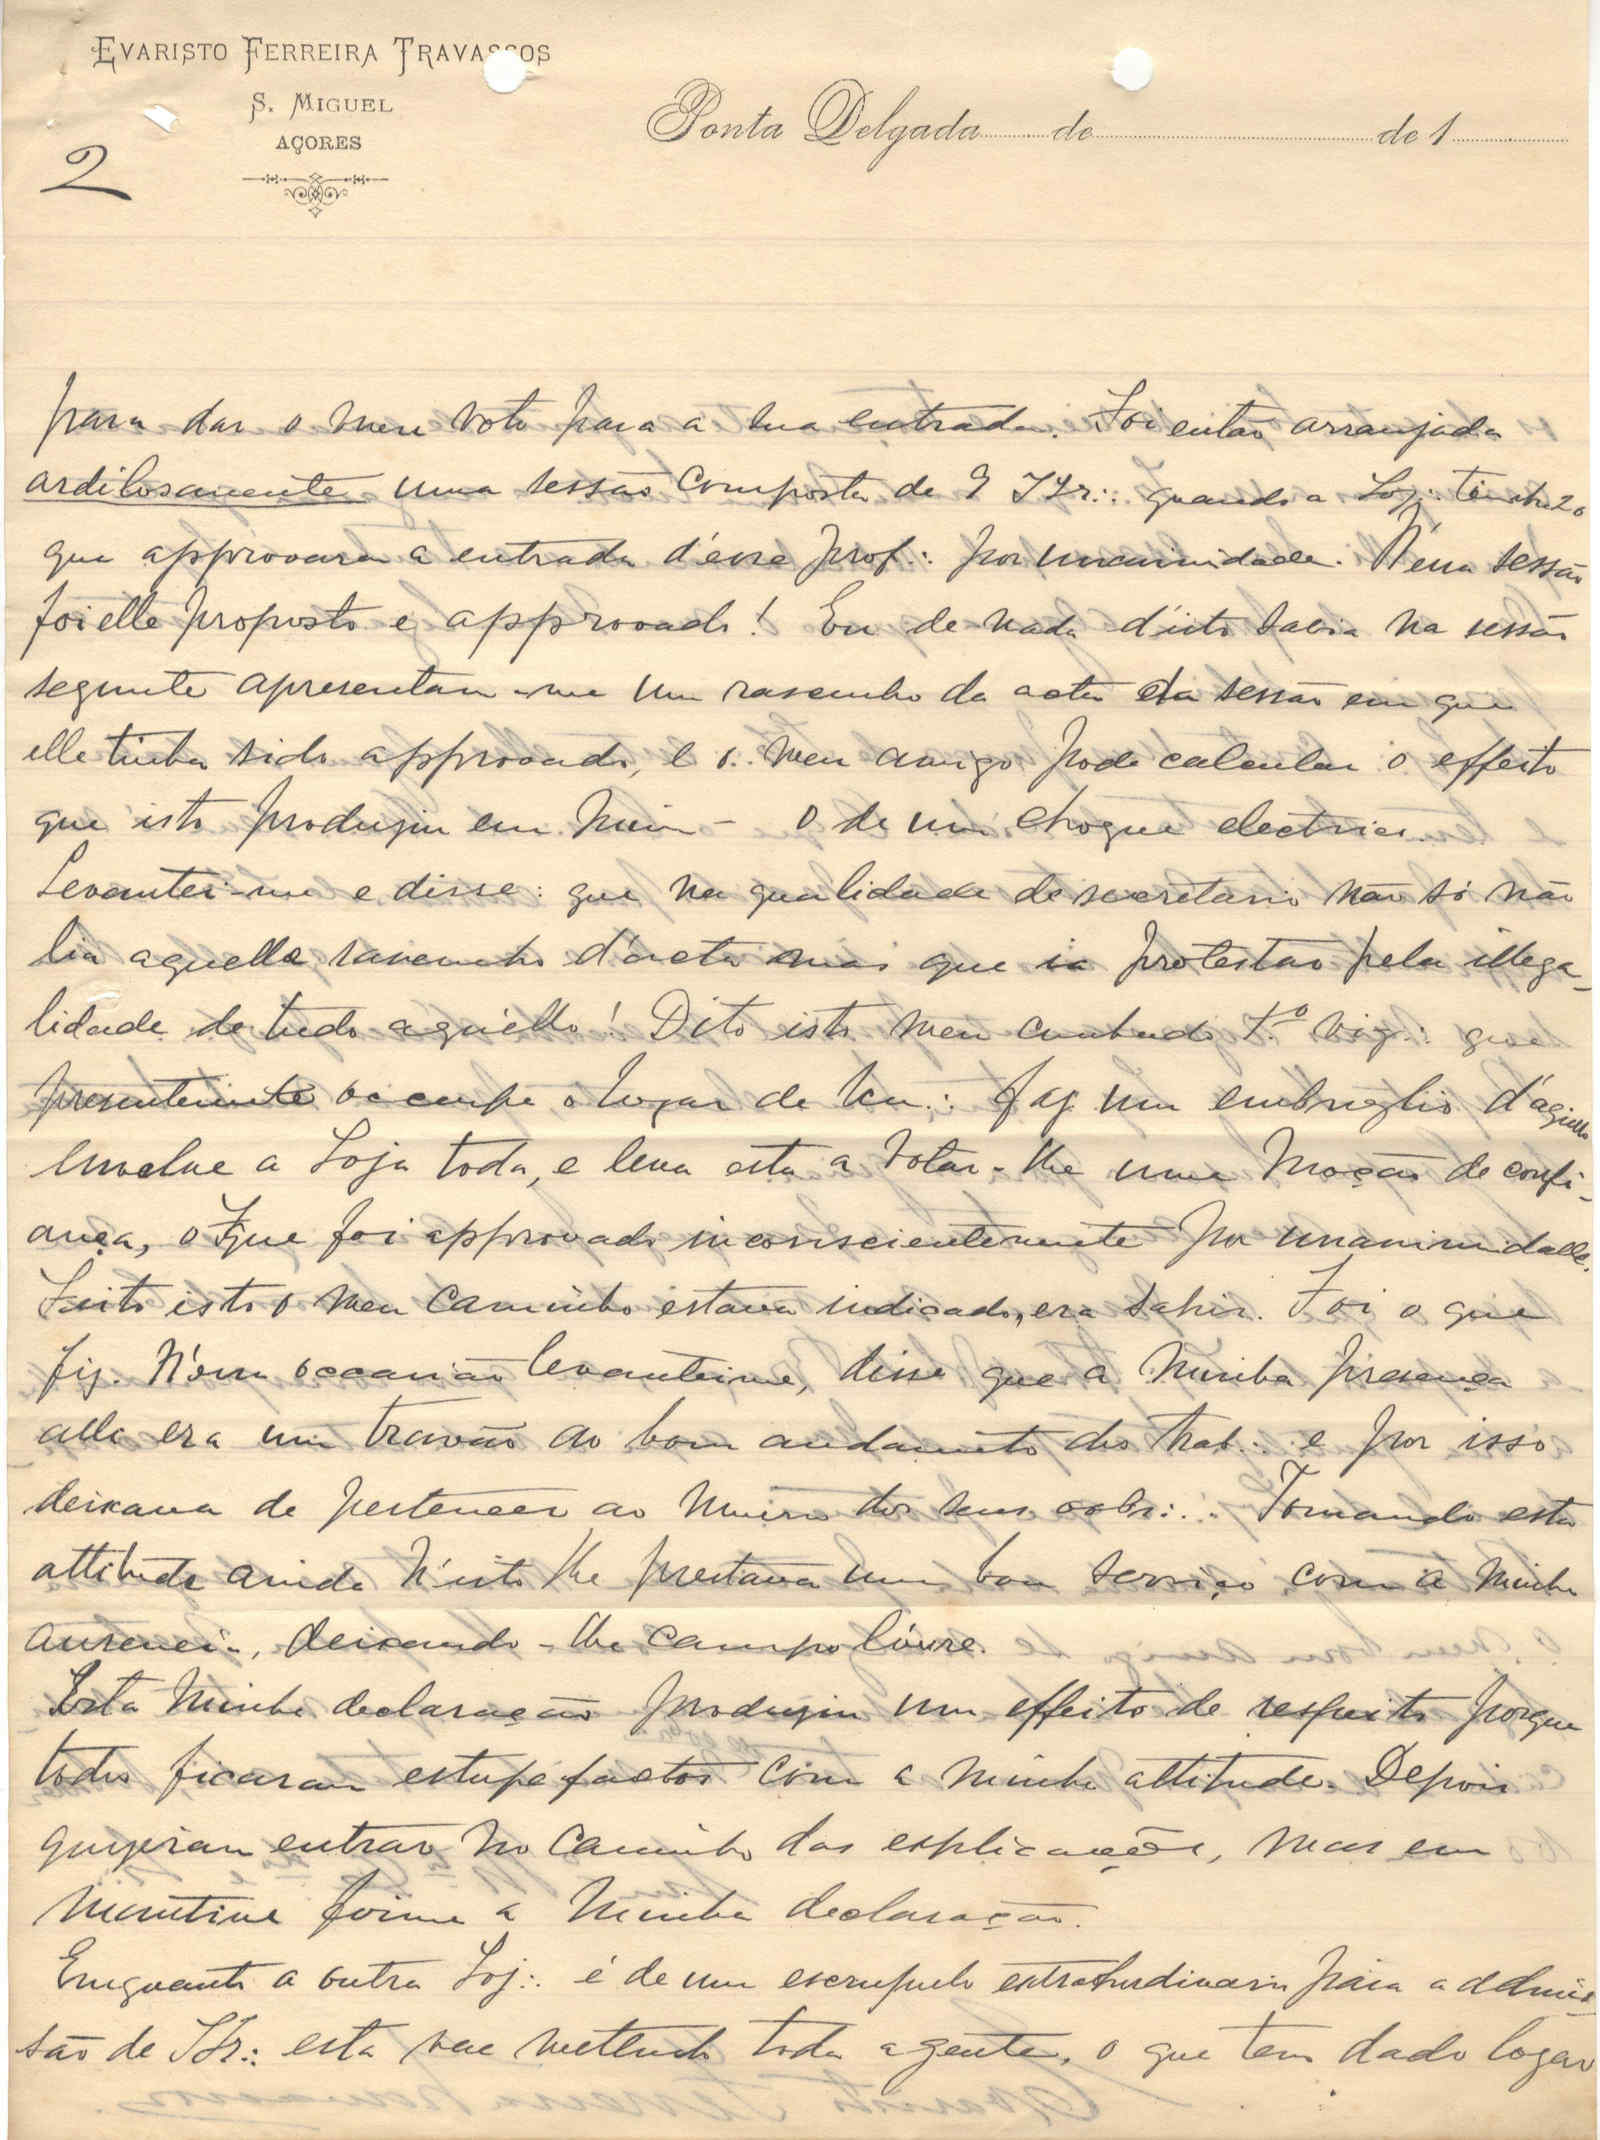 EVARISTO FERREIRA TRAVASSOS
S. MIGUEL
AÇORES
Ponta Delgada de de 1
2
para dar o meu voto para a sua entrada. Foi então arranjada
ardilosamente uma sessão composta de 9 IIr∴ quando a Loj∴ tinha 20
que approvara a entrada d'esse prof∴ por unanimidade. N'essa sessão
foi elle proposto e approvado! Eu de nada d'isto sabia na sessão
seguinte apresentam-me um rascunho da acta da sessão em que
elle tinha sido approvado, e o meu amigo pode calcular o effeito
que isto produziu em mim - o de um choque electrico.
Levantei-me e disse: que na qualidade de secretario não só não
lia aquelle rascunho d'acta mas que ia protestar pela illega-
lidade de tudo aquillo! Dito isto meu cunhado 1.º Vig∴ que
presentemente occupa o logar de Ven∴ faz um embroglio d'aquillo
envolve a Loja toda, e leva esta a votar-lhe uma moção de confi-
ança, o que foi approvado inconscientemente por unanimidade.
Feito isto o meu caminho estava indicado, era sahir. Foi o que
fiz. N'essa occasião levantei-me, disse que a minha presença
alli era um travão ao bom andamento dos trab∴ e por isso
deixava de pertencer ao numero dos seus oobr∴. Tomando esta
attitude ainda n'isto lhe prestava um bom serviço com a minha
ausencia, deixando-lhe campo livre.
Esta minha declaração produziu um effeito de respeito porque
todos ficaram estupefactos com a minha attitude. Depois
quizeram entrar no caminho das explicações, mas eu
mantive firme a minha declaração.
Emquanto a outra Loj∴ é de um escrupulo extrahordinario para a admis-
são de IIr∴ esta vae mettendo toda a gente, o que tem dado logar